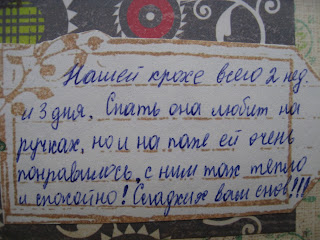 Нашей крохе всего 2 нед
и 3 дня. Спать она любит на
ручках, но и на папе ей очень
понравилось, с ним так тепло
и спокойно! Сладких вам снов!!!